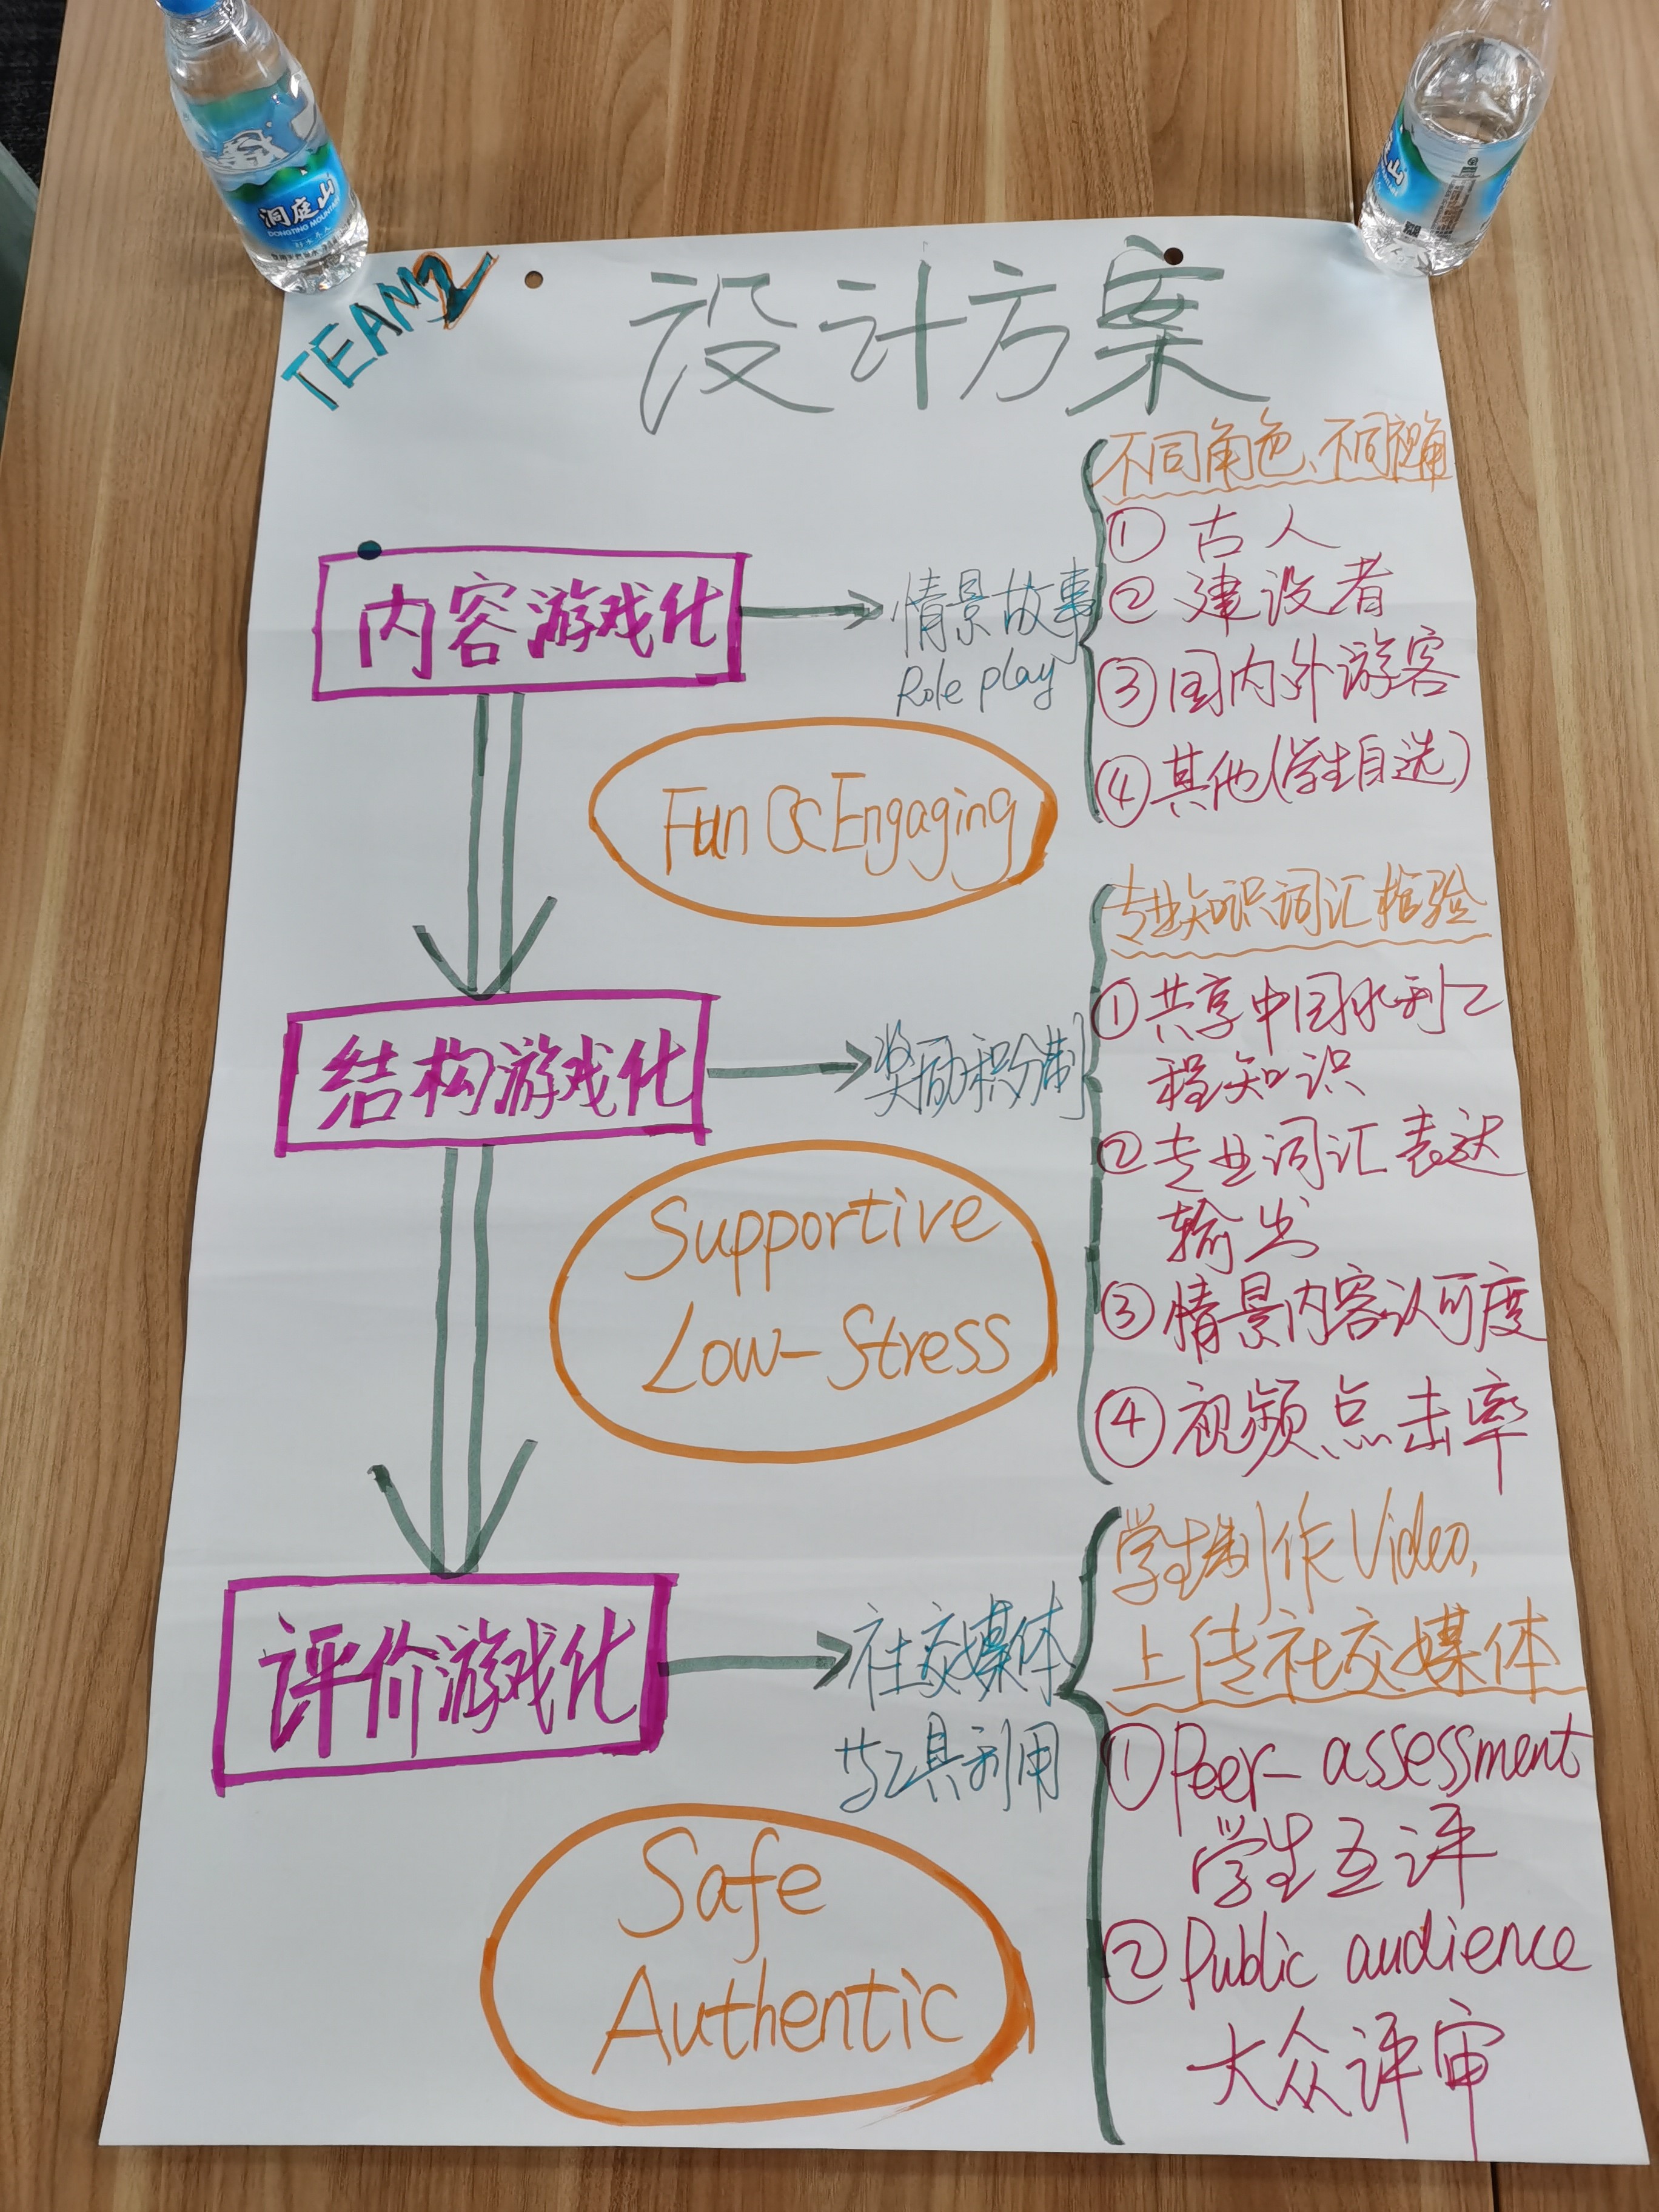 洞庭山
DONGTING MOUNTAIN
山
TEAM 2
设计方案
内容游戏化
情景故事
Role play
不同角色、不同视角
① 古人
② 建设者
③ 国内外游客
④ 其他(学生自选)
Fun & Engaging
结构游戏化
奖励积分制
专业知识词汇检验
① 共享中国水利工
程知识
② 专业词汇表达
输出
③ 情景内容认可度
④ 视频点击率
Supportive
Low-Stress
评价游戏化
社交媒体
与工具利用
学生制作Video,
上传社交媒体
① Peer-assessment
学生互评
② Public audience
大众评审
Safe
Authentic